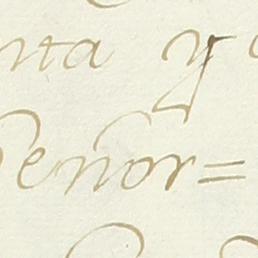 nta y
Señor=